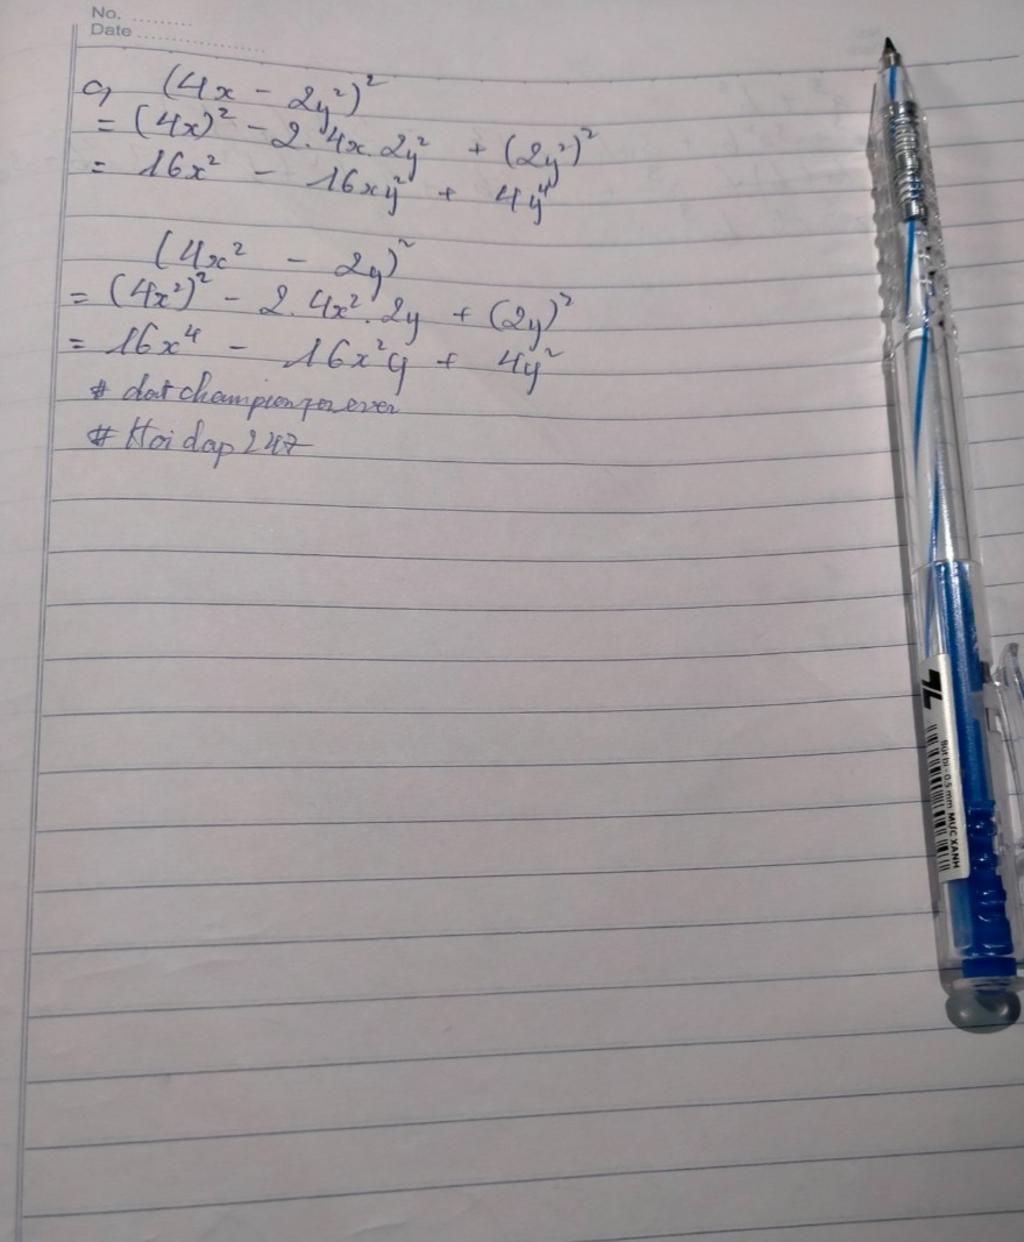 No. ........
Date ..................
a, (4x - 2y²)²
= (4x)² - 2.4x.2y² + (2y²)²
= 16x² - 16xy² + 4y⁴
(4x² - 2y)²
= (4x²)² - 2.4x².2y + (2y)²
= 16x⁴ - 16x²y + 4y²
# datchampionforever
# Hoidap247
TL
Bút bi - 0.5 mm MỰC XANH